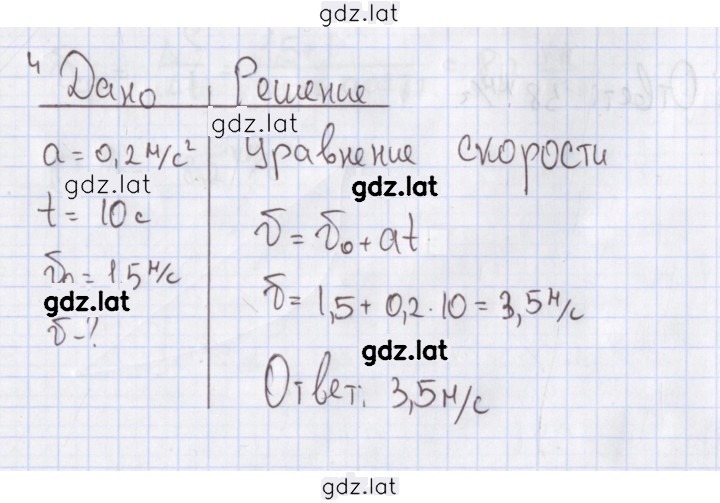 gdz.lat
4 Дано Решение
gdz.lat
a = 0,2 м/с² Уравнение скорости
gdz.lat gdz.lat
t = 10 с
v = v₀ + at
v₀ = 1,5 м/с
gdz.lat
v = 1,5 + 0,2 · 10 = 3,5 м/с
v - ?
gdz.lat
Ответ: 3,5 м/с
gdz.lat